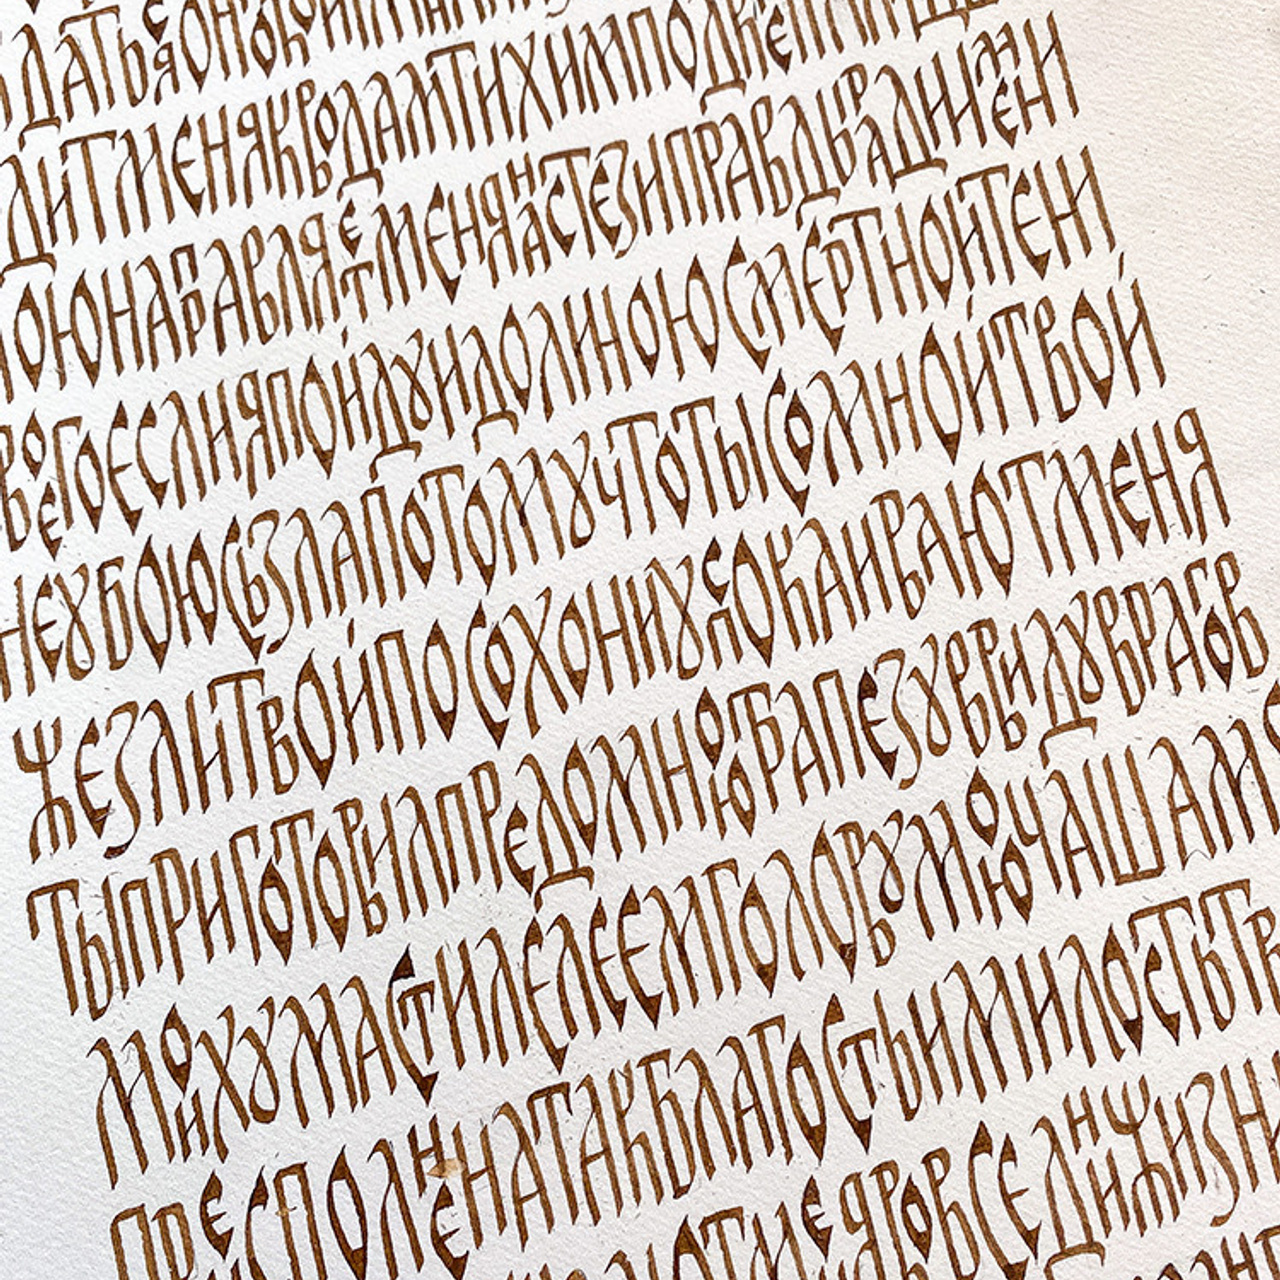 ДАТЬСЯ ОН ПОКОИТ
ДИТ МЕНЯ К ВОДАМ ТИХИМ ПОДКРЕПЛЯЕТ
ОЮ НАПРАВЛЯЕТ МЕНЯ НА СТЕЗИ ПРАВДЫ РАДИ ИМЕНИ
ВОЕГО ЕСЛИ Я ПОЙДУ И ДОЛИНОЮ СМЕРТНОЙ ТЕНИ
НЕ УБОЮСЬ ЗЛА ПОТОМУ ЧТО ТЫ СО МНОЙ ТВОЙ
ЖЕЗЛ И ТВОЙ ПОСОХ ОНИ УСПОКАИВАЮТ МЕНЯ
ТЫ ПРИГОТОВИЛ ПРЕДО МНОЮ ТРАПЕЗУ В ВИДУ ВРАГОВ
МОИХ УМАСТИЛ ЕЛЕЕМ ГОЛОВУ МОЮ ЧАША МО
ПРЕИСПОЛНЕНА ТАК БЛАГОСТЬ И МИЛОСТЬ ТВ
ЮТ МЕНЯ ВО ВСЕ ДНИ ЖИЗН